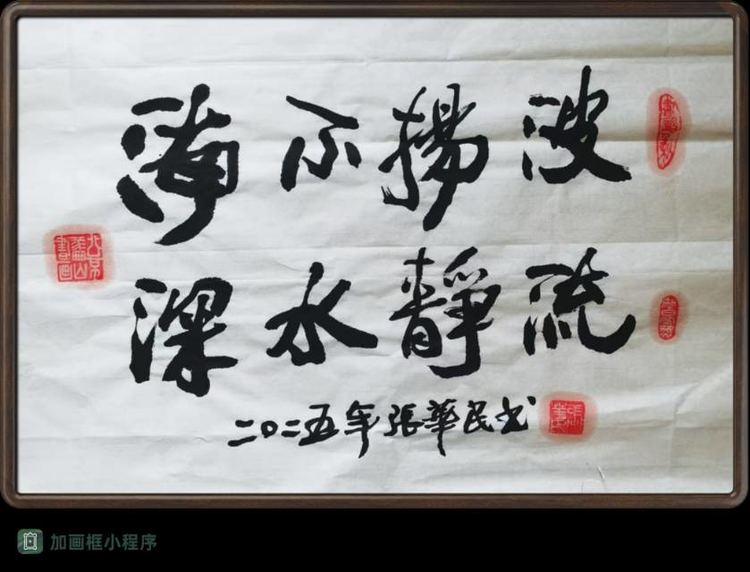 海不揚波
深水靜流
二〇二五年張華民书
加画框小程序